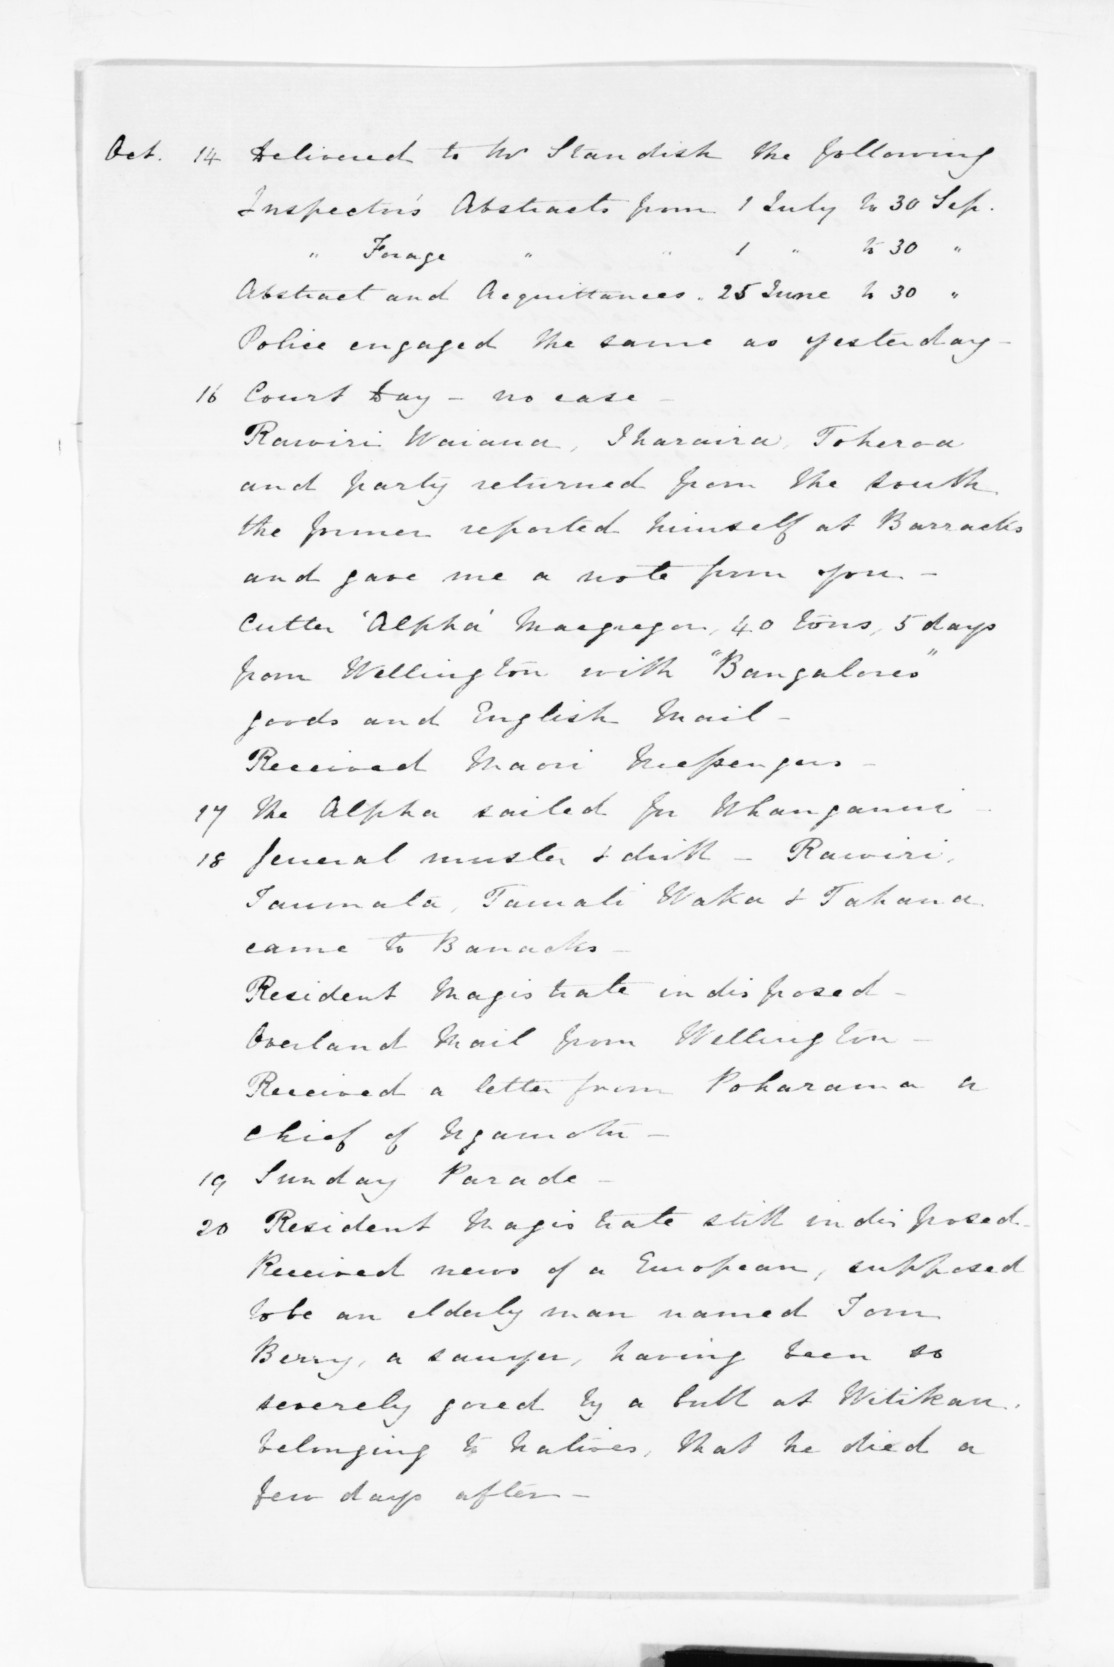 Oct. 14 Delivered to Mr Standish the following
Inspector's Abstracts from 1 July to 30 Sep.
" Forage " " 1 " to 30 "
Abstract and Acquittances. 25 June to 30 "
Police engaged the same as yesterday -
16 Court Day - no case -
Rawiri Waiaua, Iharaira, Toheroa
and party returned from the south
the former reported himself at Barracks
and gave me a note from you. -
Cutter 'Alpha' Macgregor, 40 tons, 5 days
from Wellington with "Bangalores"
goods and English Mail -
Received Maori Messengers -
17 The Alpha sailed for Whanganui -
18 General muster & drill - Rawiri,
Taumata, Tamati Waka & Tahana
came to Barracks -
Resident Magistrate indisposed -
Overland Mail from Wellington -
Received a letter from Poharama a
Chief of Ngamotu -
19 Sunday Parade -
20 Resident Magistrate still indisposed -
Received news of a European, supposed
to be an elderly man named Tom
Berry, a sawyer, having been so
severely gored by a bull at Witikau,
belonging to Natives, that he died a
few days after -